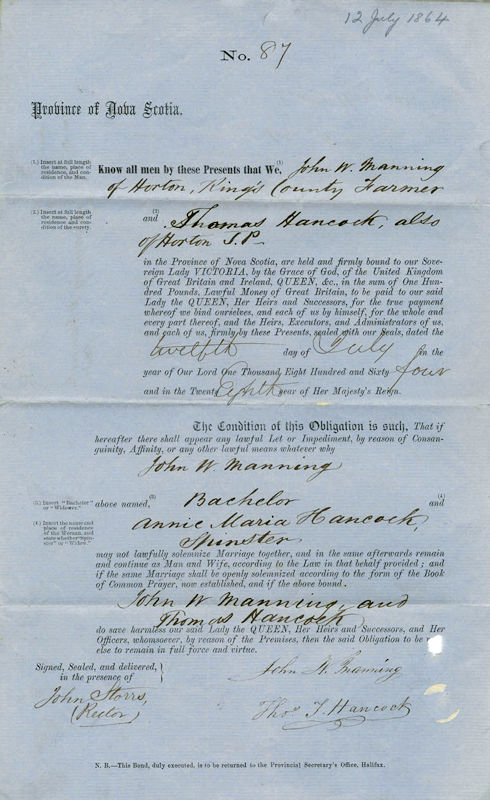 12 July 1864
No. 87
Province of Nova Scotia.
(1.) Insert at full length
the name, place of
residence, and con-
dition of the Man.
Know all men by these Presents that We, (1) John W. Manning
of Horton, King's County Farmer
(2.) Insert at full length
name, place of
residence and con-
dition of the surety.
and (2) Thomas Hancock, also
of Horton J.P.
in the Province of Nova Scotia, are held and firmly bound to our Sove-
reign Lady VICTORIA, by the Grace of God, of the United Kingdom
of Great Britain and Ireland, QUEEN, &c., in the sum of One Hun-
dred Pounds, Lawful Money of Great Britain, to be paid to our said
Lady the QUEEN, Her Heirs and Successors, for the true payment
whereof we bind ourselves, and each of us by himself, for the whole and
every part thereof, and the Heirs, Executors, and Administrators of us,
and each of us, firmly by these Presents, sealed with our Seals, dated the
twelfth day of July in the
year of Our Lord One Thousand Eight Hundred and Sixty four
and in the Twenty Eighth year of Her Majesty's Reign.
The Condition of this Obligation is such, That if
hereafter there shall appear any lawful Let or Impediment, by reason of Consan-
guinity, Affinity, or any other lawful means whatever why
John W Manning
(3.) Insert "Bachelor"
or "Widower."
above named, (3) Bachelor and (4)
(4.) Insert the name and
place of residence
of the Woman, and
state whether "Spin-
ster" or "Widow."
Annie Maria Hancock,
Spinster
may not lawfully solemnize Marriage together, and in the same afterwards remain
and continue as Man and Wife, according to the Law in that behalf provided; and
if the same Marriage shall be openly solemnized according to the form of the Book
of Common Prayer, now established, and if the above bound
John W Manning, and
Thomas Hancock
do save harmless our said Lady the QUEEN, Her Heirs and Successors, and Her
Officers, whomsoever, by reason of the Premises, then the said Obligation to be
else to remain in full force and virtue.
Signed, Sealed, and delivered,
in the presence of
John Storrs,
(Rector)
John W. Manning
Thos J. Hancock
N. B.—This Bond, duly executed, is to be returned to the Provincial Secretary's Office, Halifax.